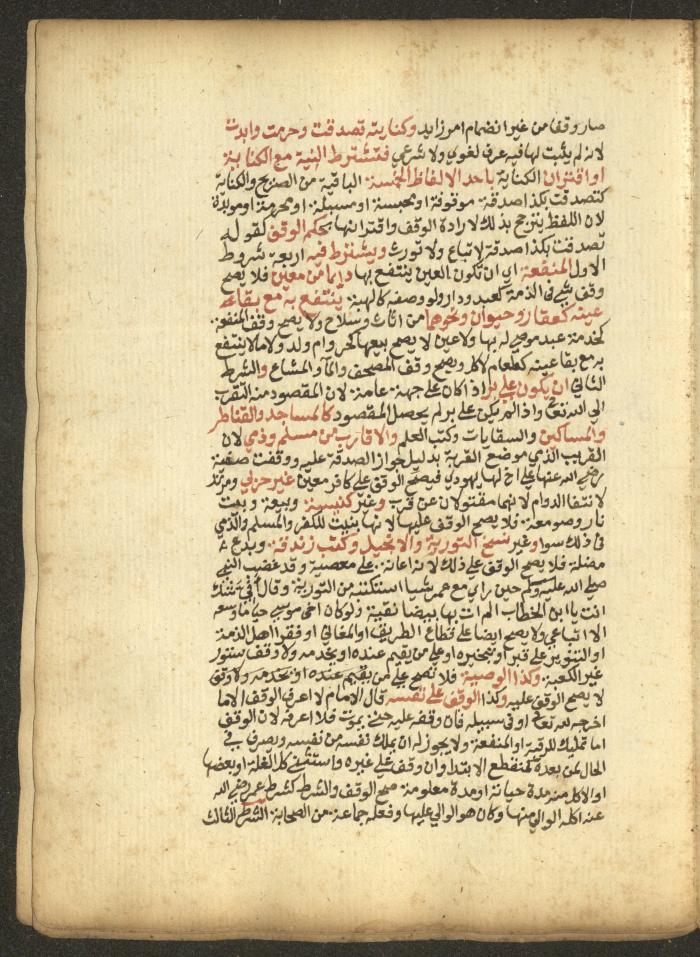 صار وقفا من غير انضمام امر زايد وكنايته تصدقت وحرمت وابدت
لانه لم يثبت لها فيه عرف لغوي ولا شرعي فتشترط النية مع الكناية
او اقتران الكناية باحد الالفاظ الخمسة الباقية من الصريح والكناية
كتصدقت بكذا صدقة موقوفة او محبسة او مسبلة او محرمة او موبدة
لان اللفظ يترجح بذلك لارادة الوقف واقترانها بحكم الوقف لقوله
تصدقت بكذا صدقة لا تباع ولا تورث ويشترط فيه اربعة شروط
الاول المنفعة اي ان تكون العين ينتفع بها دايما من معين فلا يصح
وقف شي في الذمة كعبد ودار ولو وصفه كالهبة ينتفع به مع بقاء
عينه كعقار وحيوان ونحوهما من اثاث وسلاح ولا يصح وقف المنفعة
كخدمة عبد موصى له بها ولا عين لا يصح بيعها كحر وام ولد ولا ما لا ينتفع
به مع بقا عينه كطعام لاكل ويصح وقف المصحف والماء والمشاع والشرط
الثاني ان يكون على بر اذا كان على جهة عامة لان المقصود منه التقرب
الى الله تعالى واذا لم يكن على بر لم يحصل المقصود كالمساجد والقناطر
والمساكين والسقايات وكتب العلم والاقارب من مسلم وذمي لان
القريب الذمي موضع القربة بدليل جواز الصدقة عليه ووقفت صفية
رضي الله عنها على اخ لها يهودي فيصح الوقف على كافر معين غير حربي ومرتد
لانتفا الدوام لانهما مقتولان عن قرب وغير كنيسة وبيعة وبيت
نار وصومعة فلا يصح الوقف عليها لانها بنيت للكفر والمسلم والذمي
في ذلك سوا وغير نسخ التورية والانجيل وكتب زندقة وبدع
مضلة فلا يصح الوقف على ذلك لانه اعانة على معصية وقد غضب النبي
صلى الله عليه وسلم حين راى مع عمر شيا استكتبه من التورية وقال افي شك
انت يا ابن الخطاب الم ات بها بيضا نقية ولو كان اخي موسى حيا ما وسعه
الا اتباعي ولا يصح ايضا على قطاع الطريق او المغاني او فقرا اهل الذمة
او التنوير على قبر او تبخيره او على من يقيم عنده او يخدمه ولا وقف ستور
غير الكعبة وكذا الوصية فلا تصح على من يقيم عنده او يخدمه ولا وقف
لا يصح الوقف عليه وكذا الوقف على نفسه قال الامام لا اعرف الوقف الا ما
اخرجه لله تعالى او في سبيله فان وقفه عليه حتى يموت فلا اعرفه لان الوقف
اما تمليك للرقبة او المنفعة ولا يجوز له ان يملك نفسه من نفسه ويصرف في
الحال لمن بعده كمنقطع الابتدا وان وقف على غيره واستثنى كل الغلة او بعضها
او الاكل منه مدة حياته او مدة معلومة صح الوقف والشرط كشرط عمر رضي الله
عنه اكله الوالي منها وكان هو الوالي عليها وفعله جماعة من الصحابة الشرط الثالث